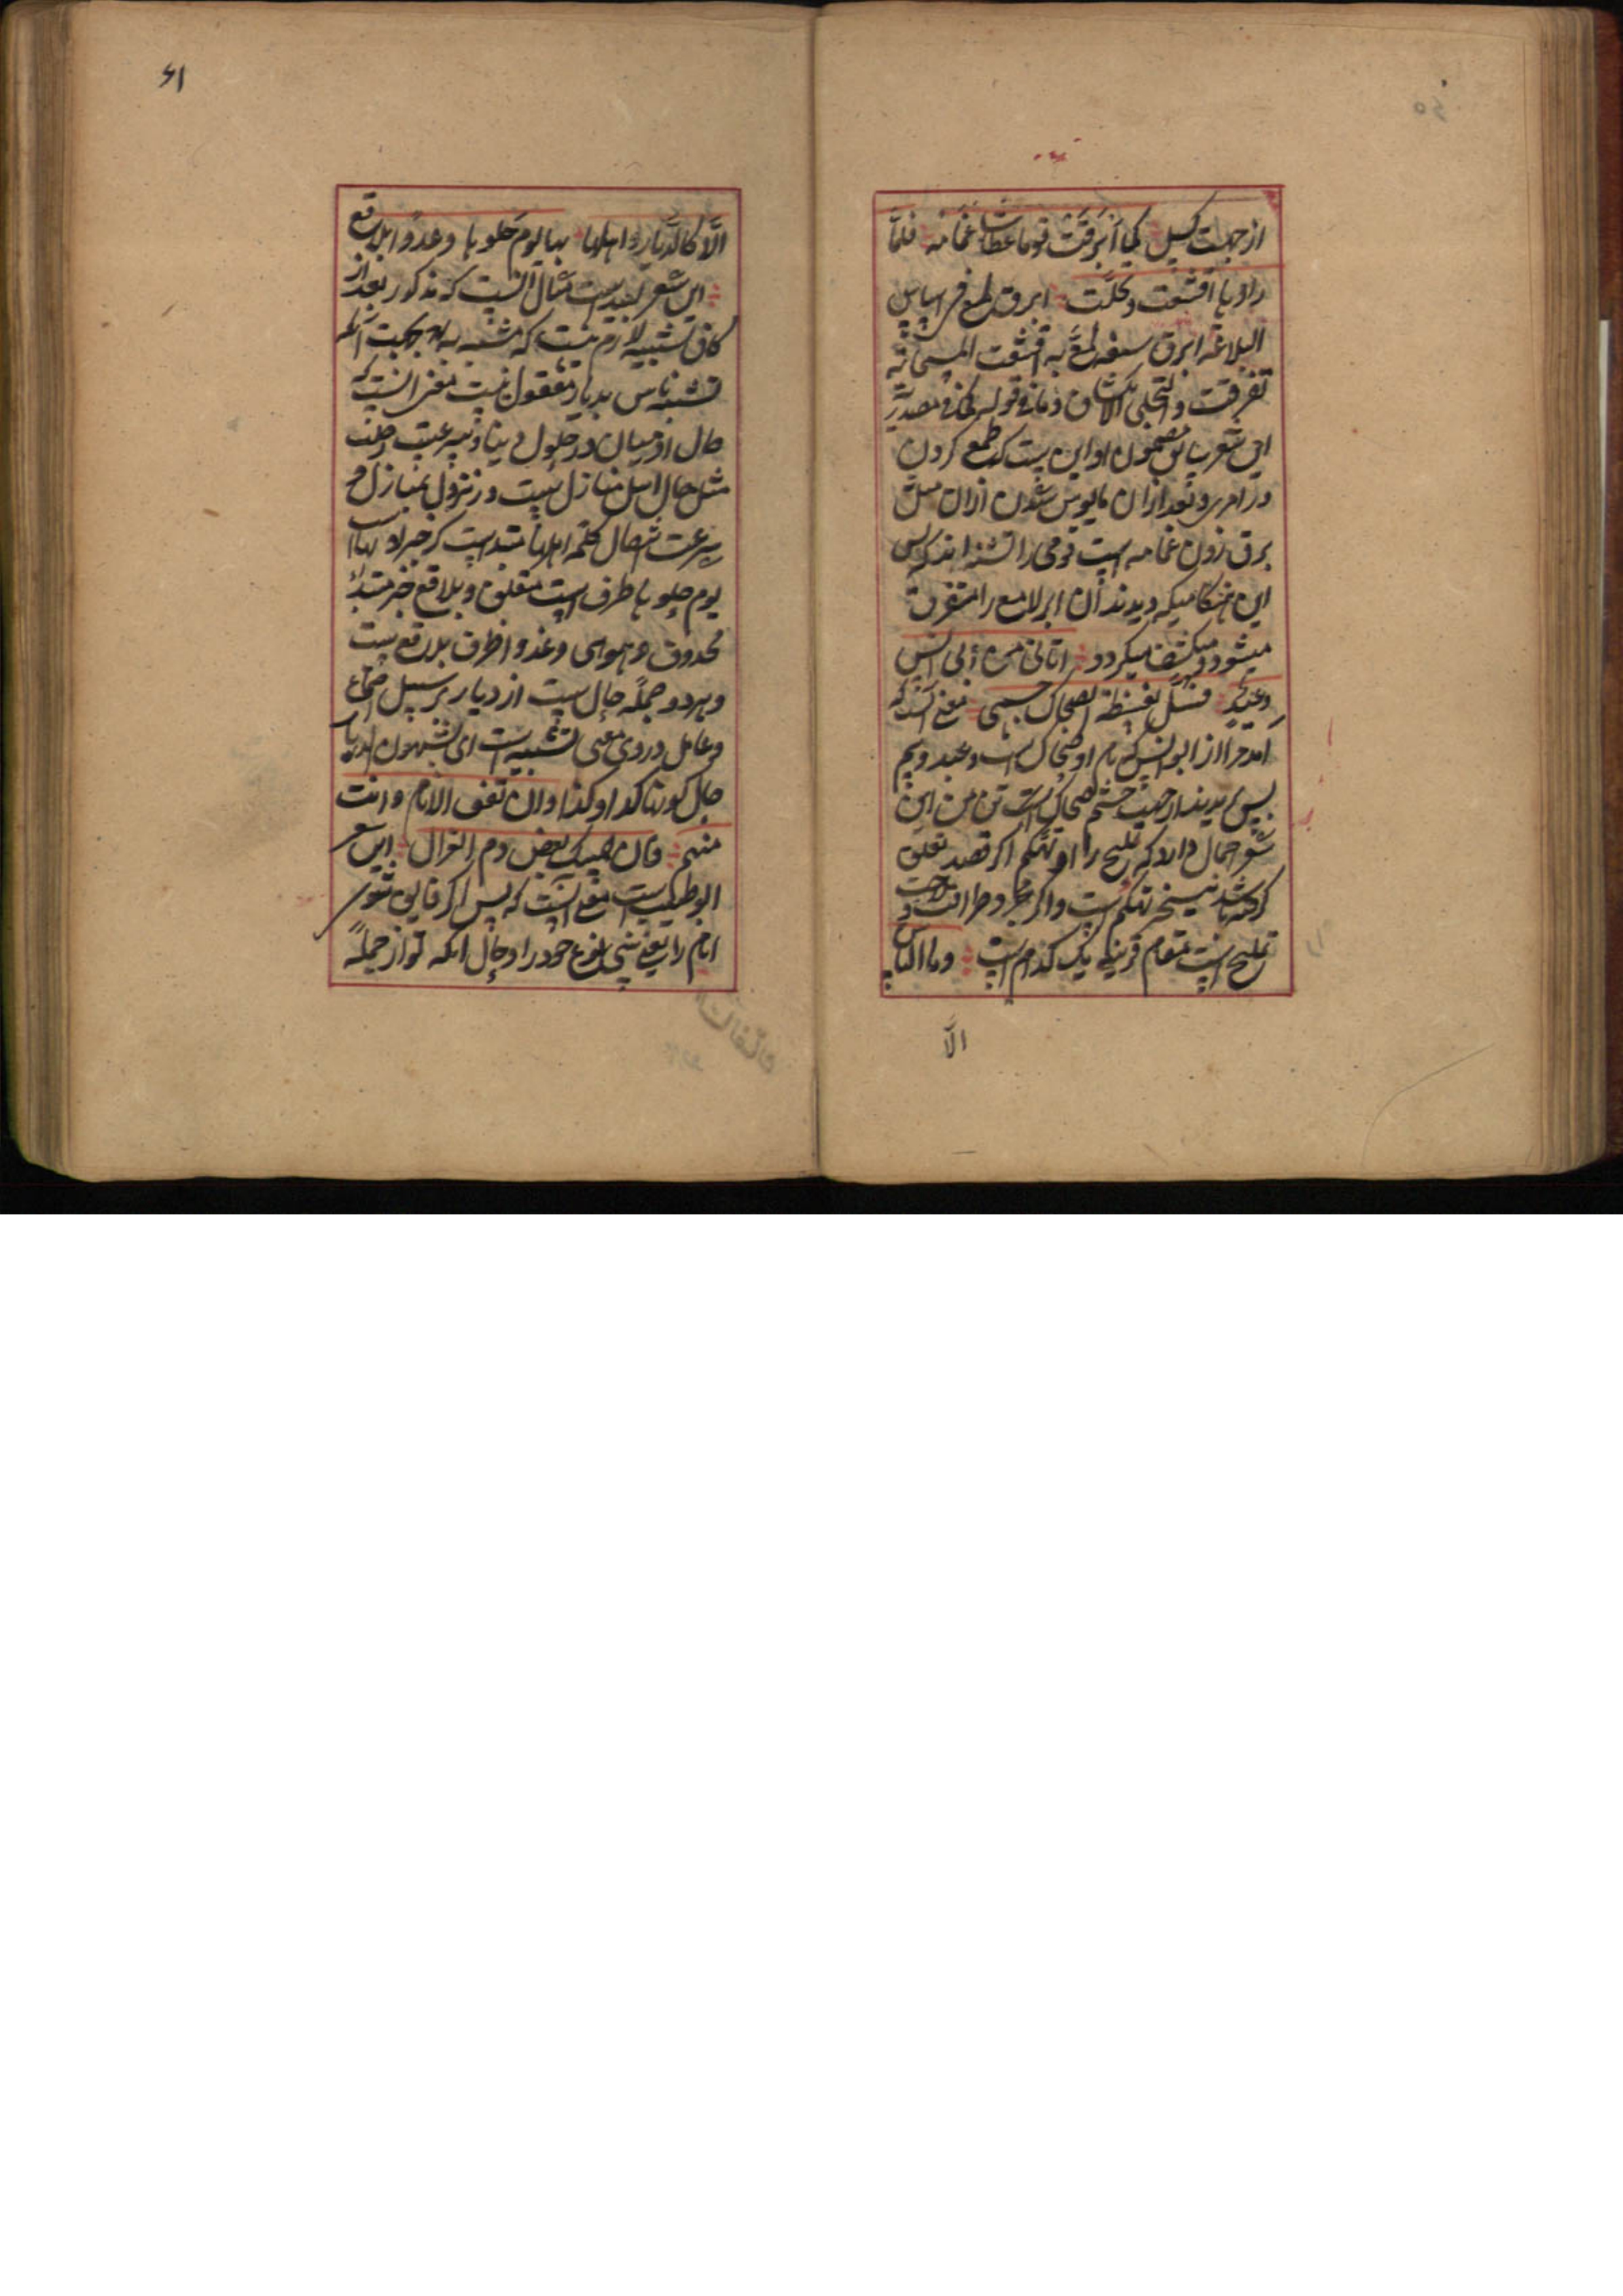 از جهت کسیل کما ابرقت قوما عطاشا غمامة فلما
راوها اقشعت وتجلت ابرق لمع فی اساس
البلاغه ابرق بسیفه لمع به اقشعت السحابة
تفرقت والتجلی الانکشاف وما فی قوله کما مصدریه
این شعر مضمون او این ست که طمع کردن
در امری و بعد ازان مایوس شدن ازان مثل
برق زدن غمامه است قومی را تشنه اند که پس
این هنکامیکه دیدند آن ابر لامع را متفرق
میشود و منکشف میکردد اتانی من ابی انس
وعید فسل لغیظة الضحاک جسمی معنی آنست که
آمد مرا از ابو انس که نام او ضحاک است وعید و بیم
پس کاهیدند از جهت خشم ضحاک است تن من این
شعر احتمال دارد که تملیح را و تهکم اگر قصد تعلق
کرفته باشد بسخر تهکم است و اگر بمجرد ظرافت
تملیح است مقام قرینه یک کدام است وما الناس
الا
۶۱
الا کالدیار واهلها بها یوم حلوها وغدوا بلاقع
این شعر لبیدست مثال انست که مذکور بعد از
کاف تشبیه لازم نیست که مشبه به بود بجهت آنکه
تشبیه ناس بدیار معقول نیست معنی انست که
حال آدمیان در حلول دنیا و سرعت رحلت
مثل حال اهل منازل ست در نزول بمنازل و
سرعت انتقال کلمه اهلها مبتداست که خبر او بها
یوم حلوها ظرف است متعلق و بلاقع خبر مبتدای
محذوف وهو هی وغدوا ظرف بلاقع ست
و هر دو جمله حال ست از دیار بر سبیل اجتماع
و عامل در وی معنی تشبیه است ای تشبهون الدیار
حال کونها کذا وکذا وان تفق الانام وانت
منهم فان المسک بعض دم الغزال این شعر
ابو طیب است معنی آنست که پس اگر فایق شوی
انام را یعنی بنی نوع خود را و حال آنکه تو از جمله